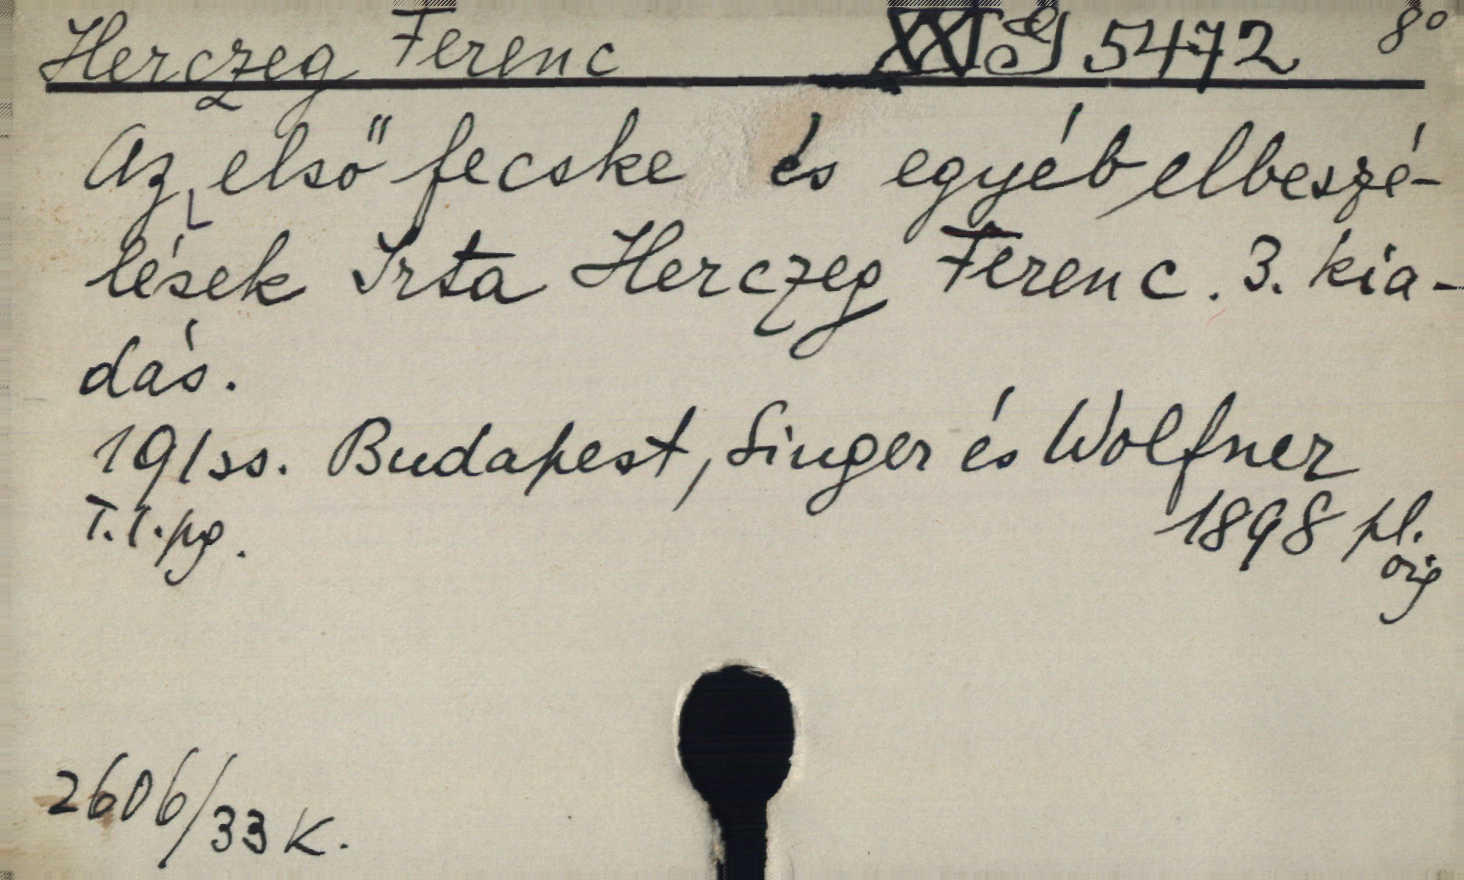 Herczeg Ferenc XXI G 5472 8°
Az első fecske és egyéb elbeszé-
lések Irta Herczeg Ferenc. 3. kia-
dás.
191 ss. Budapest, Singer és Wolfner
T.l.pg. 1898 pl.
orig
2606/33 K.